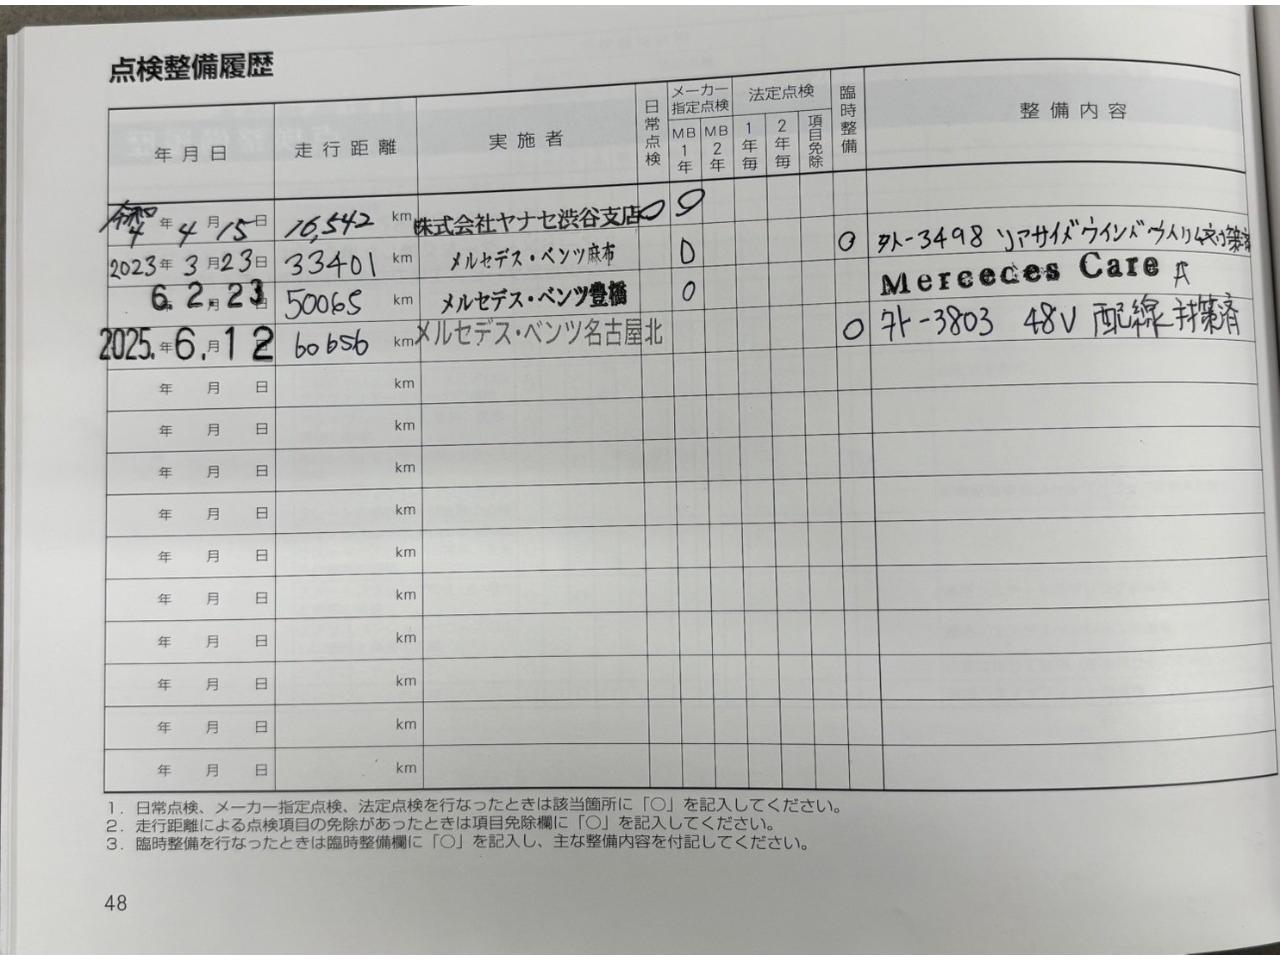 点検整備履歴
年月日 走行距離 実施者 日常点検 メーカー指定点検 MB1年 MB2年 法定点検 1年毎 2年毎 項目免除 臨時整備 整備内容
令和4年 4月 15日 16,542 km 株式会社ヤナセ渋谷支店 ○ ○
2023年 3月 23日 33401 km メルセデス・ベンツ麻布 ○ ○ 外-3498 リアサイドウインドウ
6年 2月 23日 50065 km メルセデス・ベンツ豊橋 ○ Mercedes Care A
2025年 6月 12日 60656 km メルセデス・ベンツ名古屋北 ○ 外-3803 48V 配線 対策済
年 月 日 km
年 月 日 km
年 月 日 km
年 月 日 km
年 月 日 km
年 月 日 km
年 月 日 km
年 月 日 km
年 月 日 km
年 月 日 km
1. 日常点検、メーカー指定点検、法定点検を行なったときは該当箇所に「○」を記入してください。
2. 走行距離による点検項目の免除があったときは項目免除欄に「○」を記入してください。
3. 臨時整備を行なったときは臨時整備欄に「○」を記入し、主な整備内容を付記してください。
48